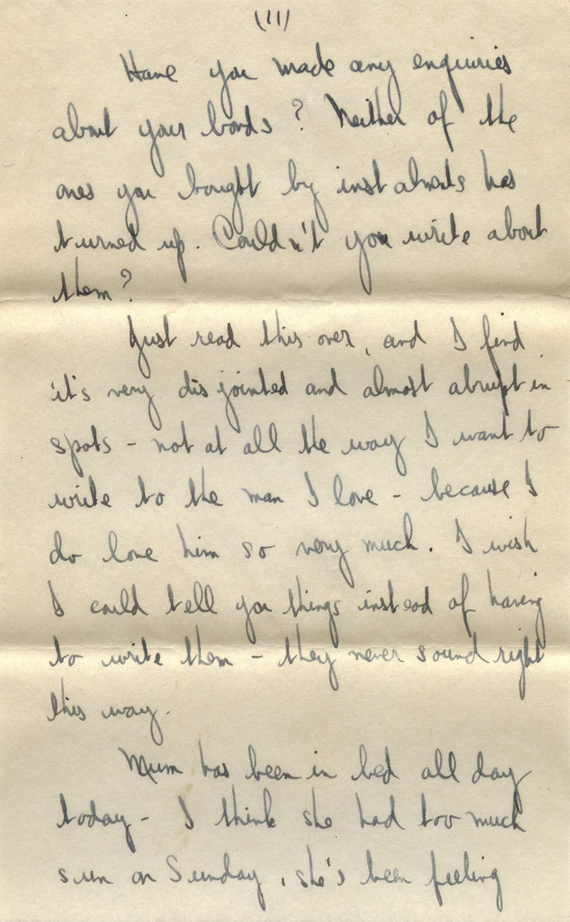 (11)
Have you made any enquiries
about your bonds? Neither of the
ones you bought by instalments has
turned up. Couldn't you write about
them?
Just read this over, and I find
it's very disjointed and almost abrupt in
spots - not at all the way I want to
write to the man I love - because I
do love him so very much. I wish
I could tell you things instead of having
to write them - they never sound right
this way.
Mum has been in bed all day
today - I think she had too much
sun on Sunday, she's been feeling